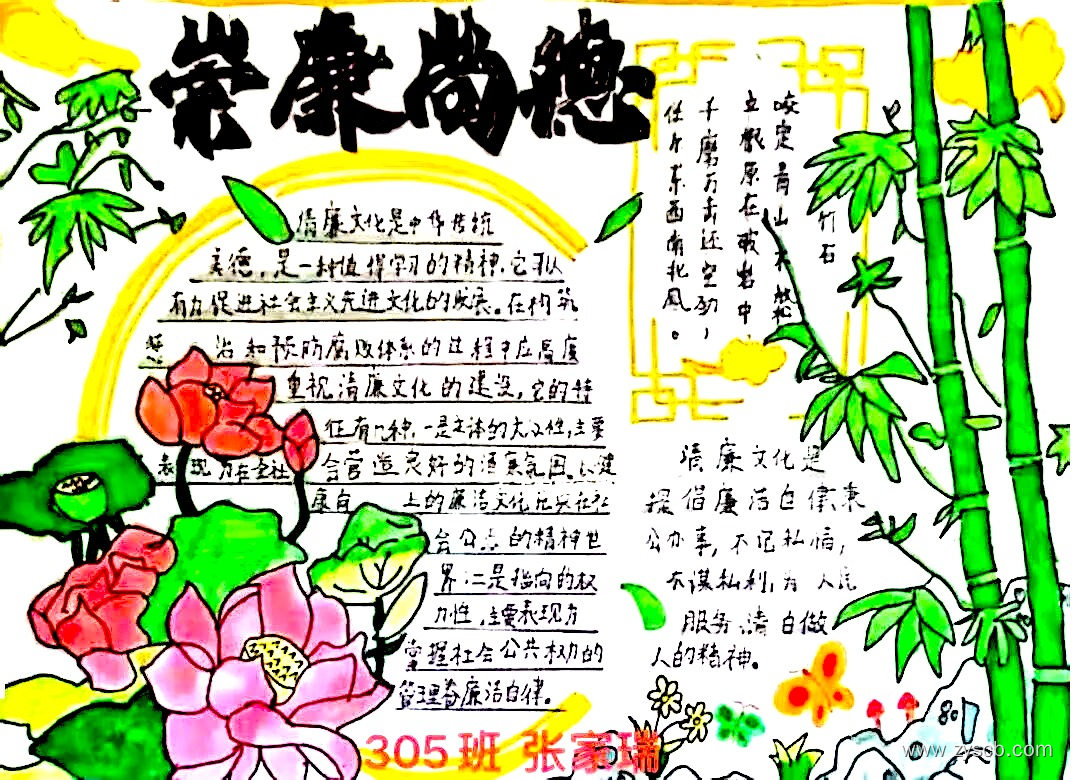 崇廉尚德
清廉文化是中华传统
美德,是一种值得学习的精神,它可以
有力促进社会主义先进文化的发展。在构筑
治和预防腐败体系的过程中应高度
重视清廉文化的建设,它的特
征有几种,一是主体的大众性,主要
表现为在全社会营造良好的道廉氛围,以健
康向上的廉洁文化充实在社
会公点的精神世
界,二是指向的权
力性,主要表现为
掌握社会公共权力的
管理者廉洁自律。
竹石
咬定青山不放松
立根原在破岩中,
千磨万击还坚劲,
任尔东西南北风。
清廉文化是
提倡廉洁自律秉
公办事,不记私
不谋私利,为人民
服务,清白做
人的精神。
305班 张家瑞
www.zyscb.com